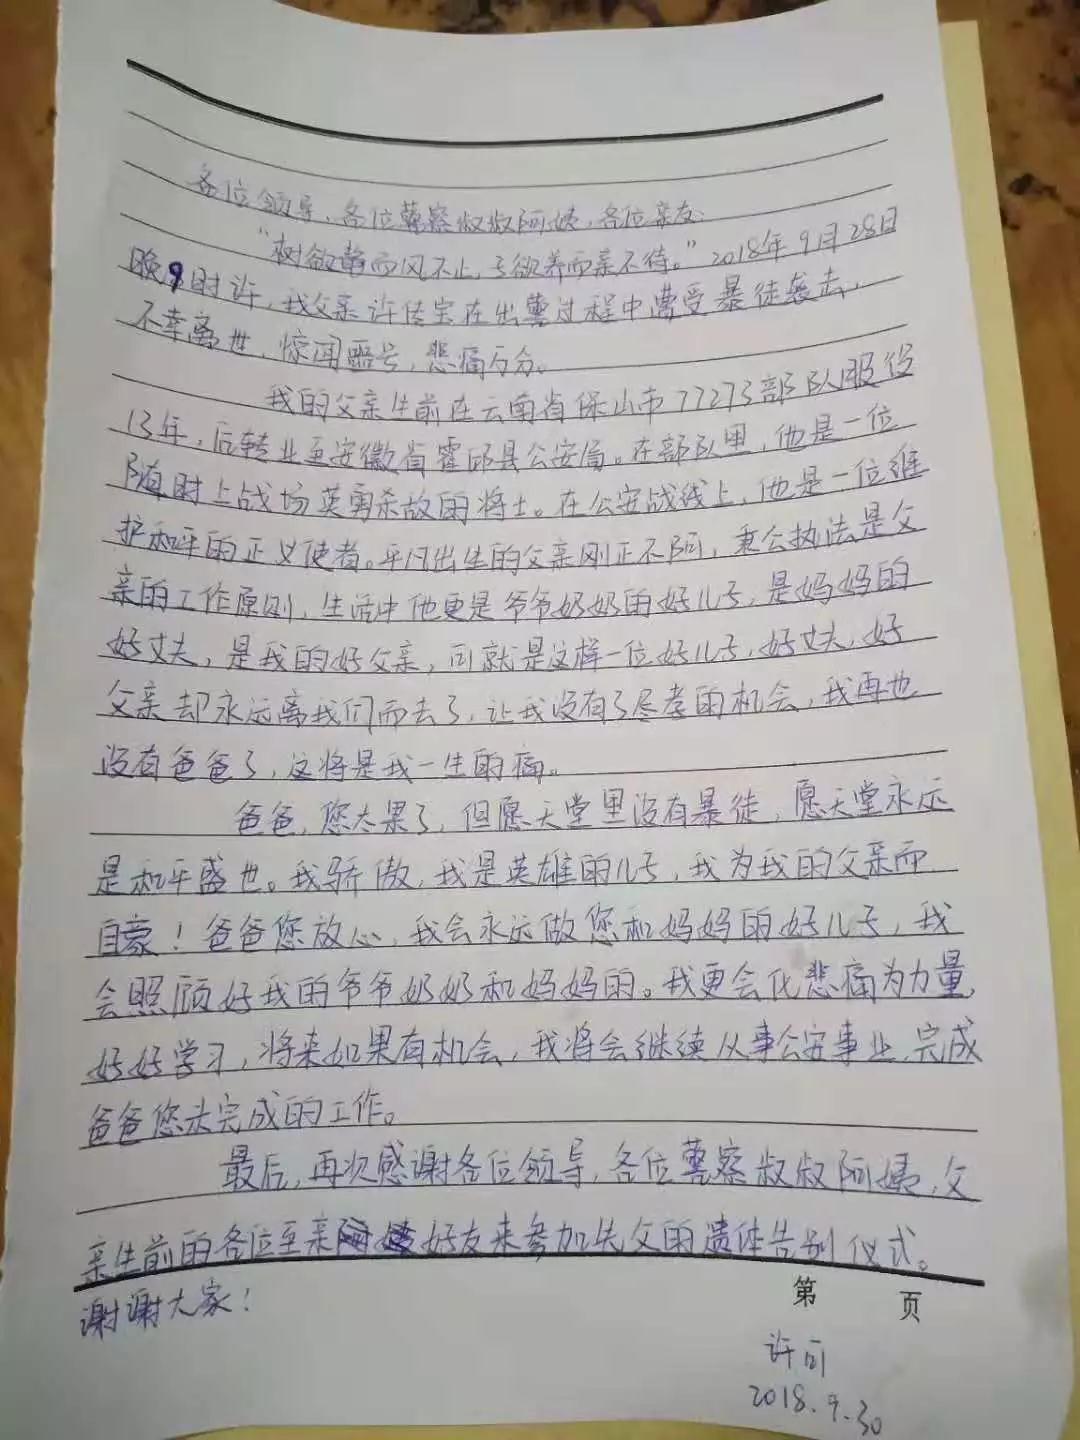 各位领导、各位警察叔叔阿姨，各位亲友：
“树欲静而风不止，子欲养而亲不待。”2018年9月28日
晚9时许，我父亲许传宝在出警过程中遭受暴徒袭击，
不幸离世，惊闻噩号，悲痛万分。
我的父亲生前在云南省保山市77273部队服役
13年，后转业至安徽省霍邱县公安局。在部队里，他是一位
随时上战场英勇杀敌的将士。在公安战线上，他是一位维
护和平的正义使者。平凡出生的父亲刚正不阿，秉公执法是父
亲的工作原则，生活中他更是爷爷奶奶的好儿子，是妈妈的
好丈夫，是我的好父亲，可就是这样一位好儿子，好丈夫，好
父亲却永远离我们而去了，让我没有了尽孝的机会，我再也
没有爸爸了，这将是我一生的痛。
爸爸，您太累了，但愿天堂里没有暴徒，愿天堂永远
是和平盛世。我骄傲，我是英雄的儿子，我为我的父亲而
自豪！爸爸您放心，我会永远做您和妈妈的好儿子，我
会照顾好我的爷爷奶奶和妈妈的。我更会化悲痛为力量，
好好学习，将来如果有机会，我将会继续从事公安事业，完成
爸爸您未完成的工作。
最后，再次感谢各位领导，各位警察叔叔阿姨，父
亲生前的各位至亲好友来参加失父的遗体告别仪式。
谢谢大家！
第 页
许可
2018.9.30